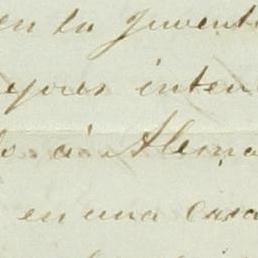 en la juvent
ejores inten
o á Alema
en una casa